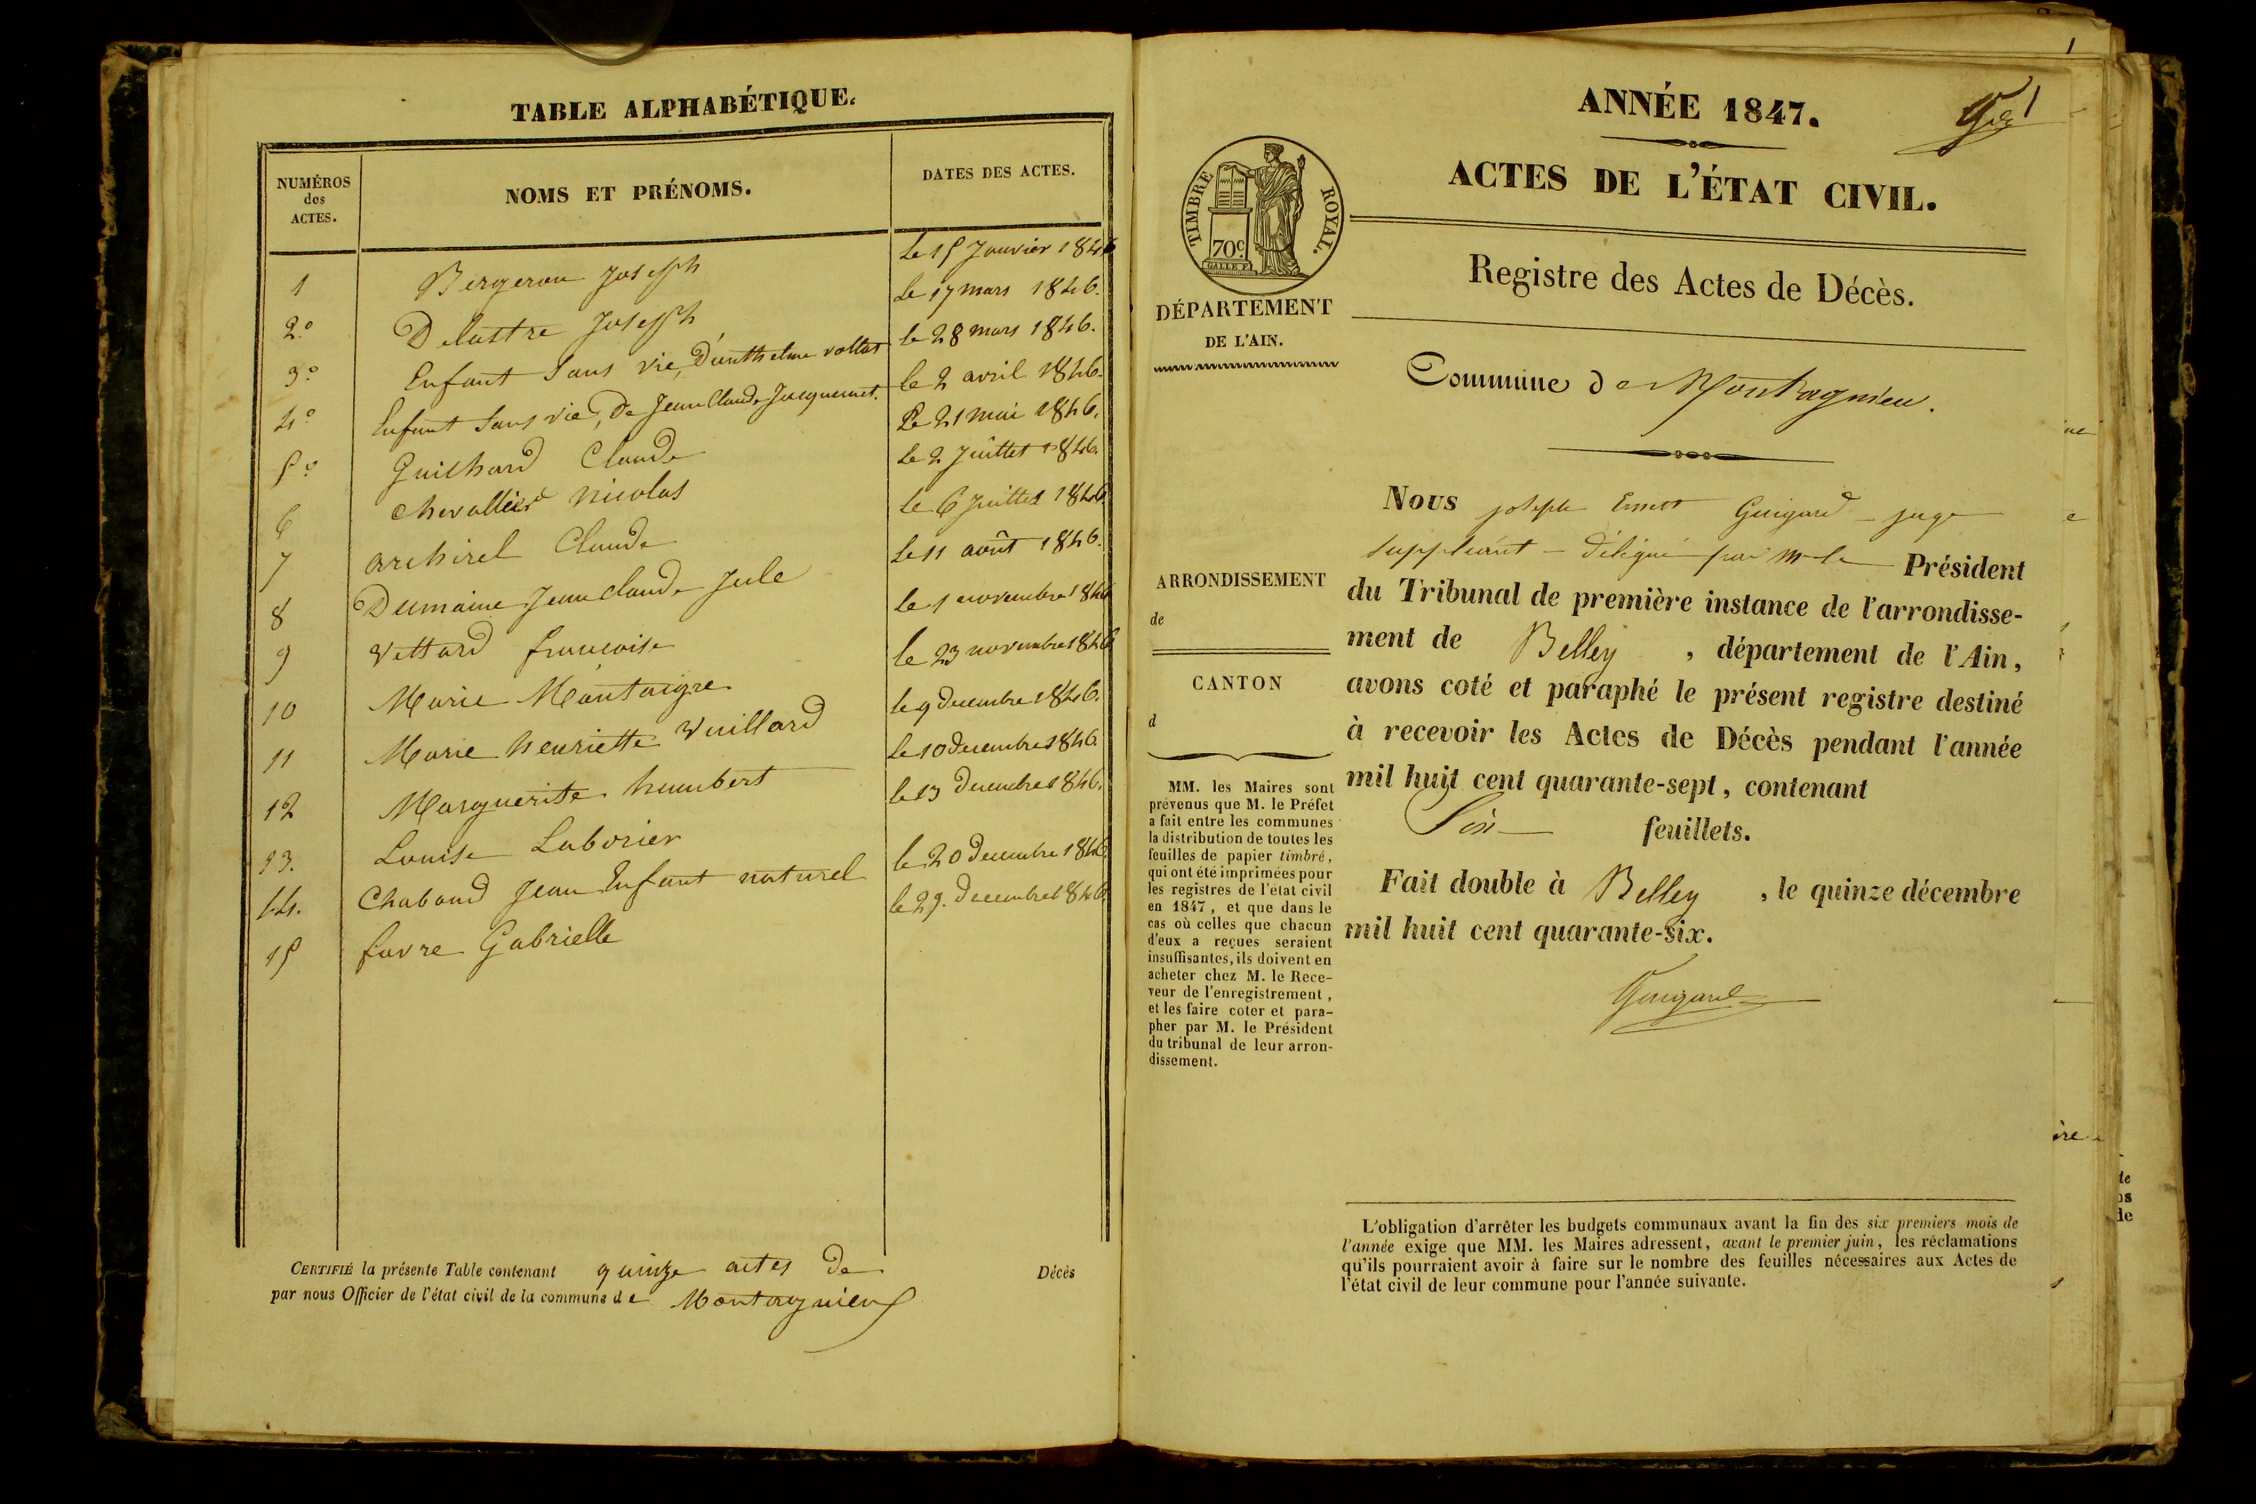 TABLE ALPHABÉTIQUE.
NUMÉROS
des
ACTES.
NOMS ET PRÉNOMS.
DATES DES ACTES.
1 Bergeron Joseph Le 15 Janvier 1846
2.° Delastre Joseph Le 17 mars 1846.
3.° Enfant Sans vie, D'anthelme vollat le 28 mars 1846.
4.° Enfant Sans vie, De Jean Claude Jacquemet. le 2 avril 1846.
5.° Guichard Claude Le 21 mai 1846.
6 Chevallier nicolas Le 2 Juillet 1846.
7 archirel Claude le 6 Juillet 1846
8 Dumaine Jean Claude Jule Le 11 août 1846.
9 Vettard francoise Le 1 novembre 1846
10 Marie Montaigre le 23 novembre 1846
11 Marie henriette Vuillard le 9 decembre 1846.
12 Marguerite humbert Le 10 decembre 1846.
13. Louise Laborier le 13 decembre 1846.
14. Chaboud Jean Enfant naturel le 20 decembre 1846
15 favre Gabrielle le 29. decembre 1846
CERTIFIÉ la présente Table contenant quinze actes de Décès
par nous Officier de l'état civil de la commune de Montagnieu
1
1
ANNÉE 1847.
ACTES DE L'ÉTAT CIVIL.
TIMBRE ROYAL.
70c.
Registre des Actes de Décès.
DÉPARTEMENT
DE L'AIN.
Commune de Montagnieu.
ARRONDISSEMENT
de
CANTON
d
MM. les Maires sont
prévenus que M. le Préfet
a fait entre les communes
la distribution de toutes les
feuilles de papier timbré,
qui ont été imprimées pour
les registres de l'état civil
en 1847, et que dans le
cas où celles que chacun
d'eux a reçues seraient
insuffisantes, ils doivent en
acheter chez M. le Rece-
veur de l'enregistrement,
et les faire coter et para-
pher par M. le Président
du tribunal de leur arron-
dissement.
Nous joseph Ernest Guigard juge
suppléant – délégué par m le Président
du Tribunal de première instance de l'arrondisse-
ment de Belley , département de l'Ain,
avons coté et paraphé le présent registre destiné
à recevoir les Actes de Décès pendant l'année
mil huit cent quarante-sept, contenant
Six feuillets.
Fait double à Belley , le quinze décembre
mil huit cent quarante-six.
Guigard
L'obligation d'arrêter les budgets communaux avant la fin des six premiers mois de
l'année exige que MM. les Maires adressent, avant le premier juin, les réclamations
qu'ils pourraient avoir à faire sur le nombre des feuilles nécessaires aux Actes de
l'état civil de leur commune pour l'année suivante.